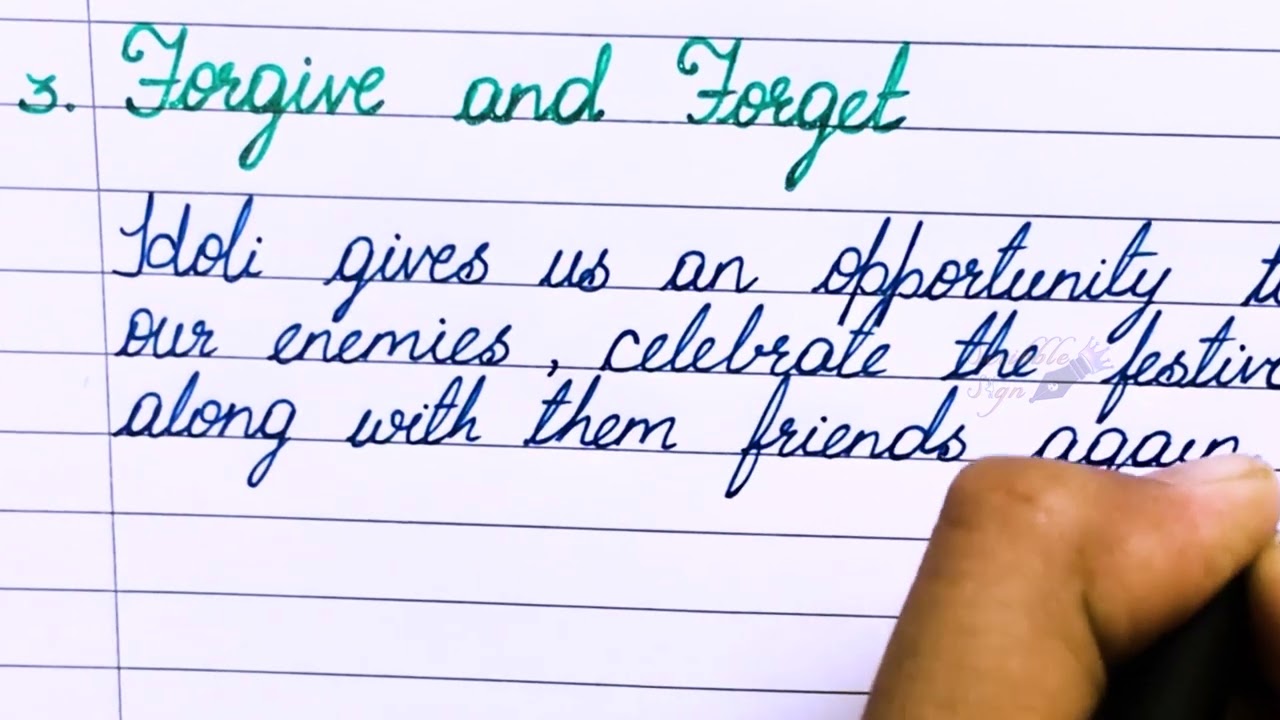 3. Forgive and Forget
Holi gives us an opportunity to
our enemies, celebrate the
along with them friends again
Scribble
Sign